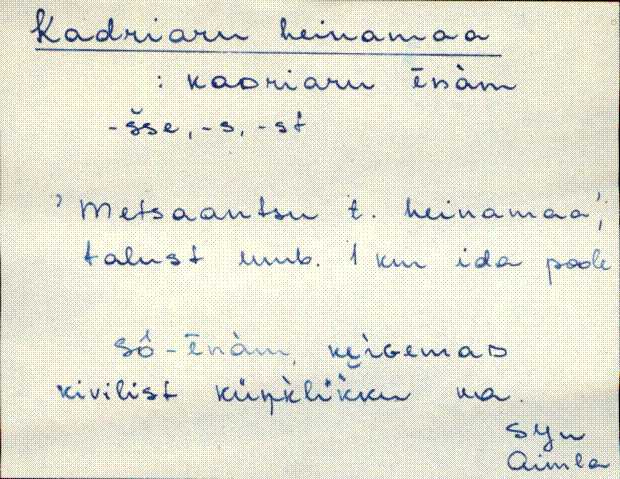 Kadriaru heinamaa
: kaᴅriaru ēnàm
-šse, -s, -st
'Metsaantsu t. heinamaa';
talust umb. 1 km ida poole
sô-ēnàm,
kivilist ma.
Syn
Aimla